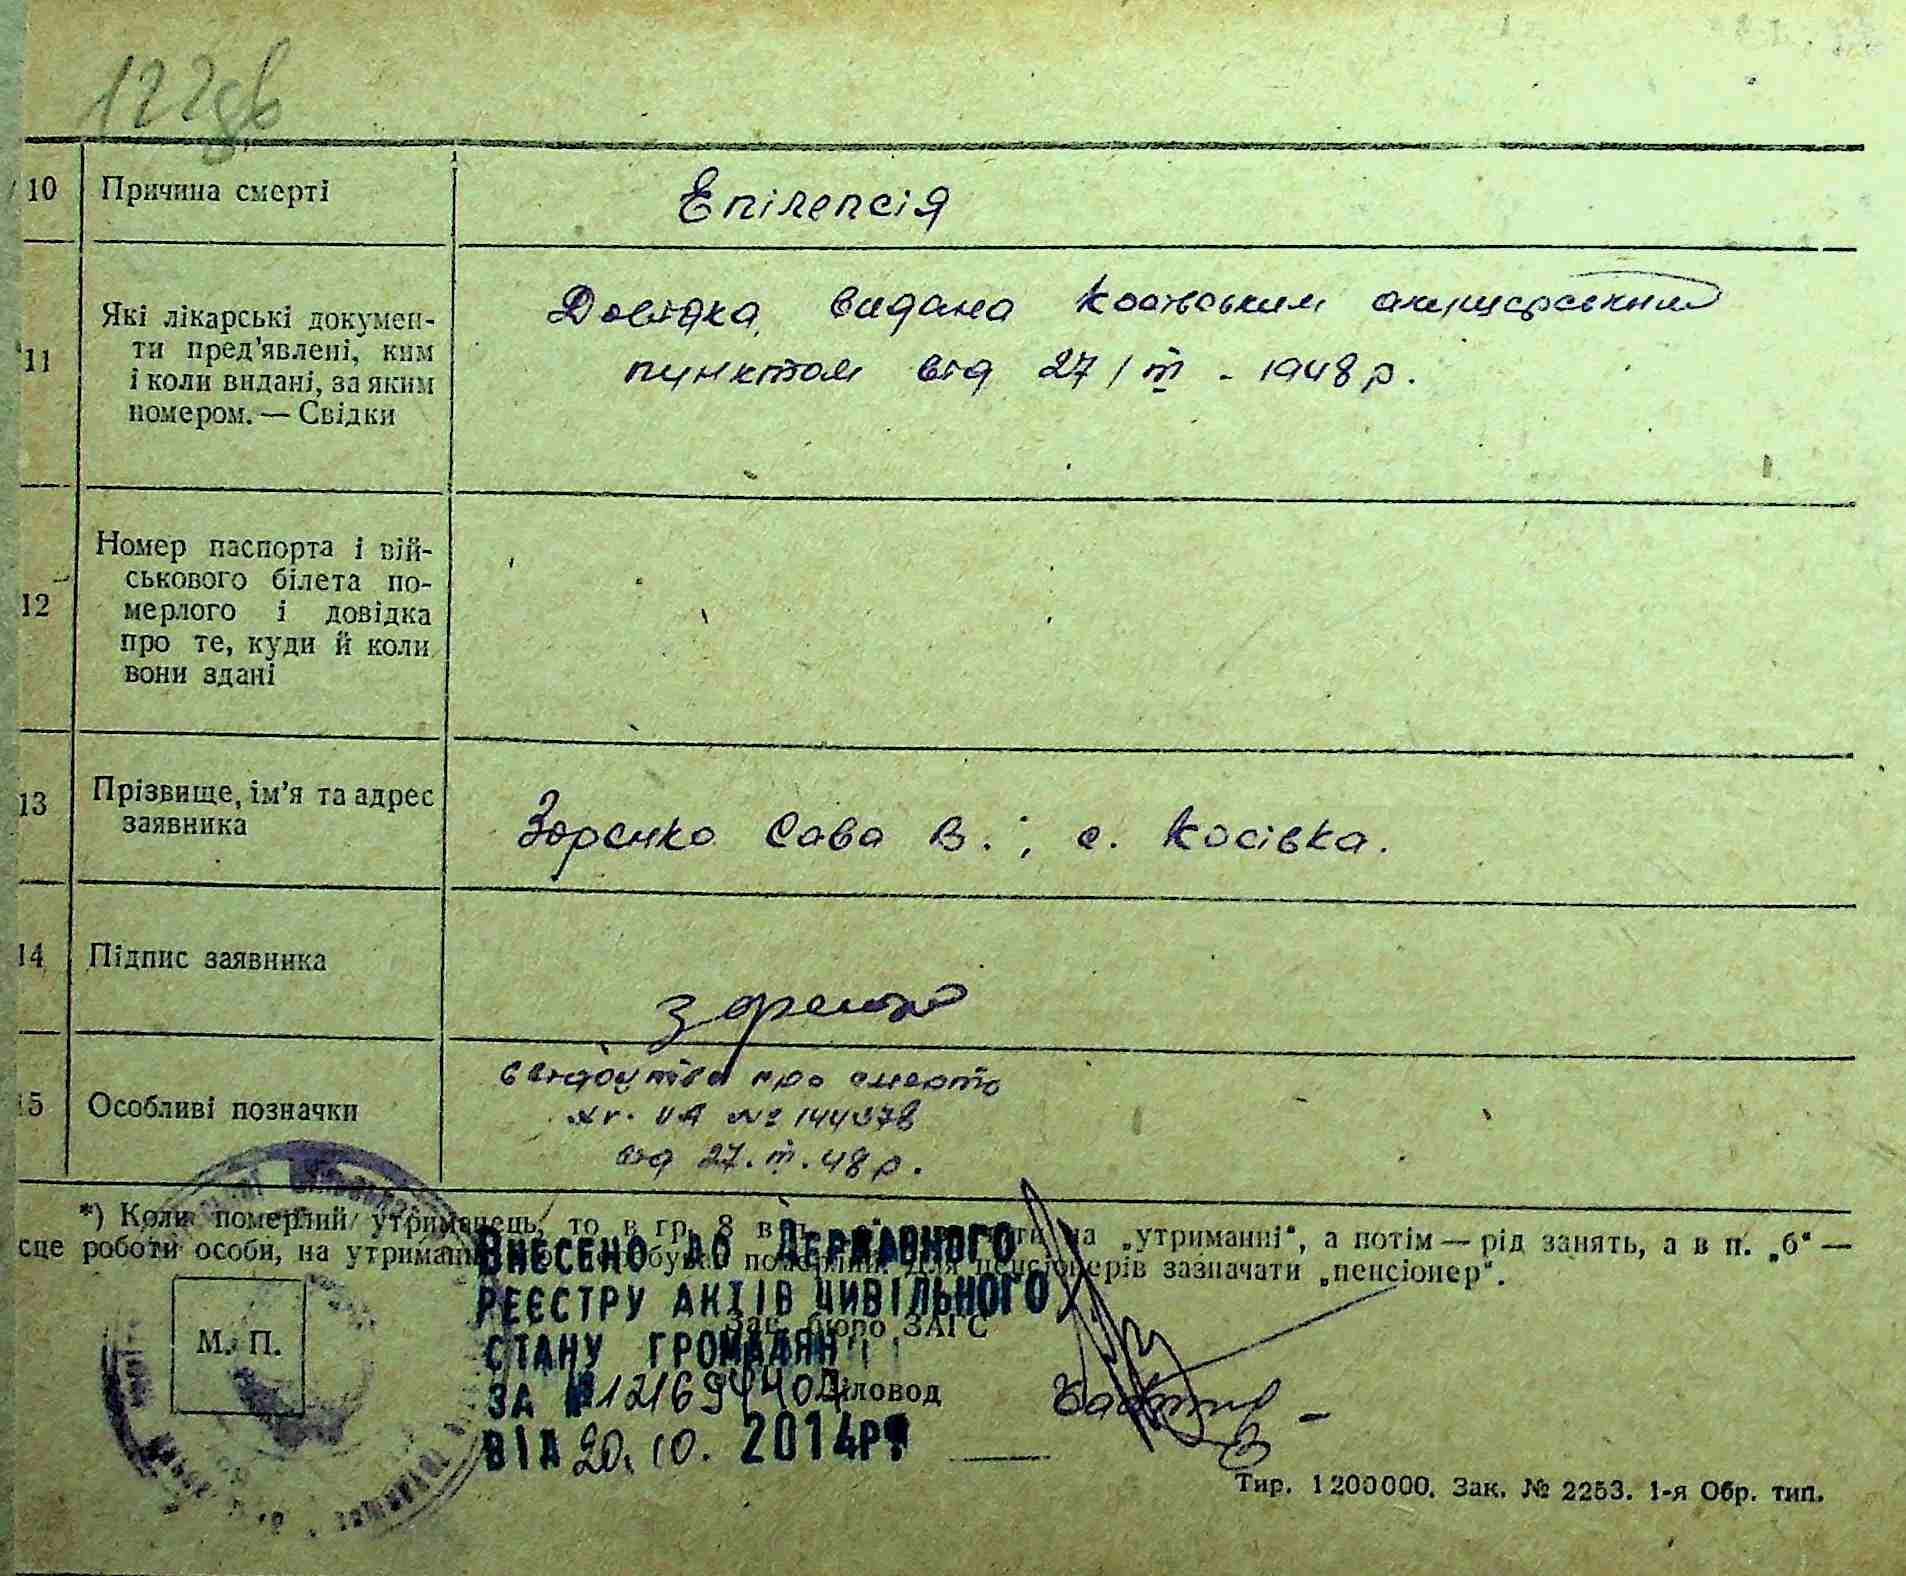 122
10 Причина смерті Епілепсія
11 Які лікарські докумен-
ти пред'явлені, ким
і коли видані, за яким
номером. — Свідки
Довідка, видана Косівським акушерським
пунктом від 27/ІІІ - 1948 р.
12 Номер паспорта і вій-
ськового білета по-
мерлого і довідка
про те, куди й коли
вони здані
13 Прізвище, ім'я та адрес
заявника
Зоренко Сава В.; с. Косівка.
14 Підпис заявника
Зоренко
15 Особливі позначки
про смерть
УА № 144378
від 27.ІІІ.48 р.
*) Коли померлий утриманець, то в гр. 8 в на „утриманні“, а потім — рід занять, а в п. „б“ —
сце роботи особи, на утриманні пенсіонерів зазначати „пенсіонер“.
Внесено до Державного
реєстру актів цивільного
стану громадян
за № 12169440
від 20.10. 2014р.
М. П.
Зав. бюро ЗАГС
Діловод
Тир. 1200000. Зак. № 2253. 1-я Обр. тип.